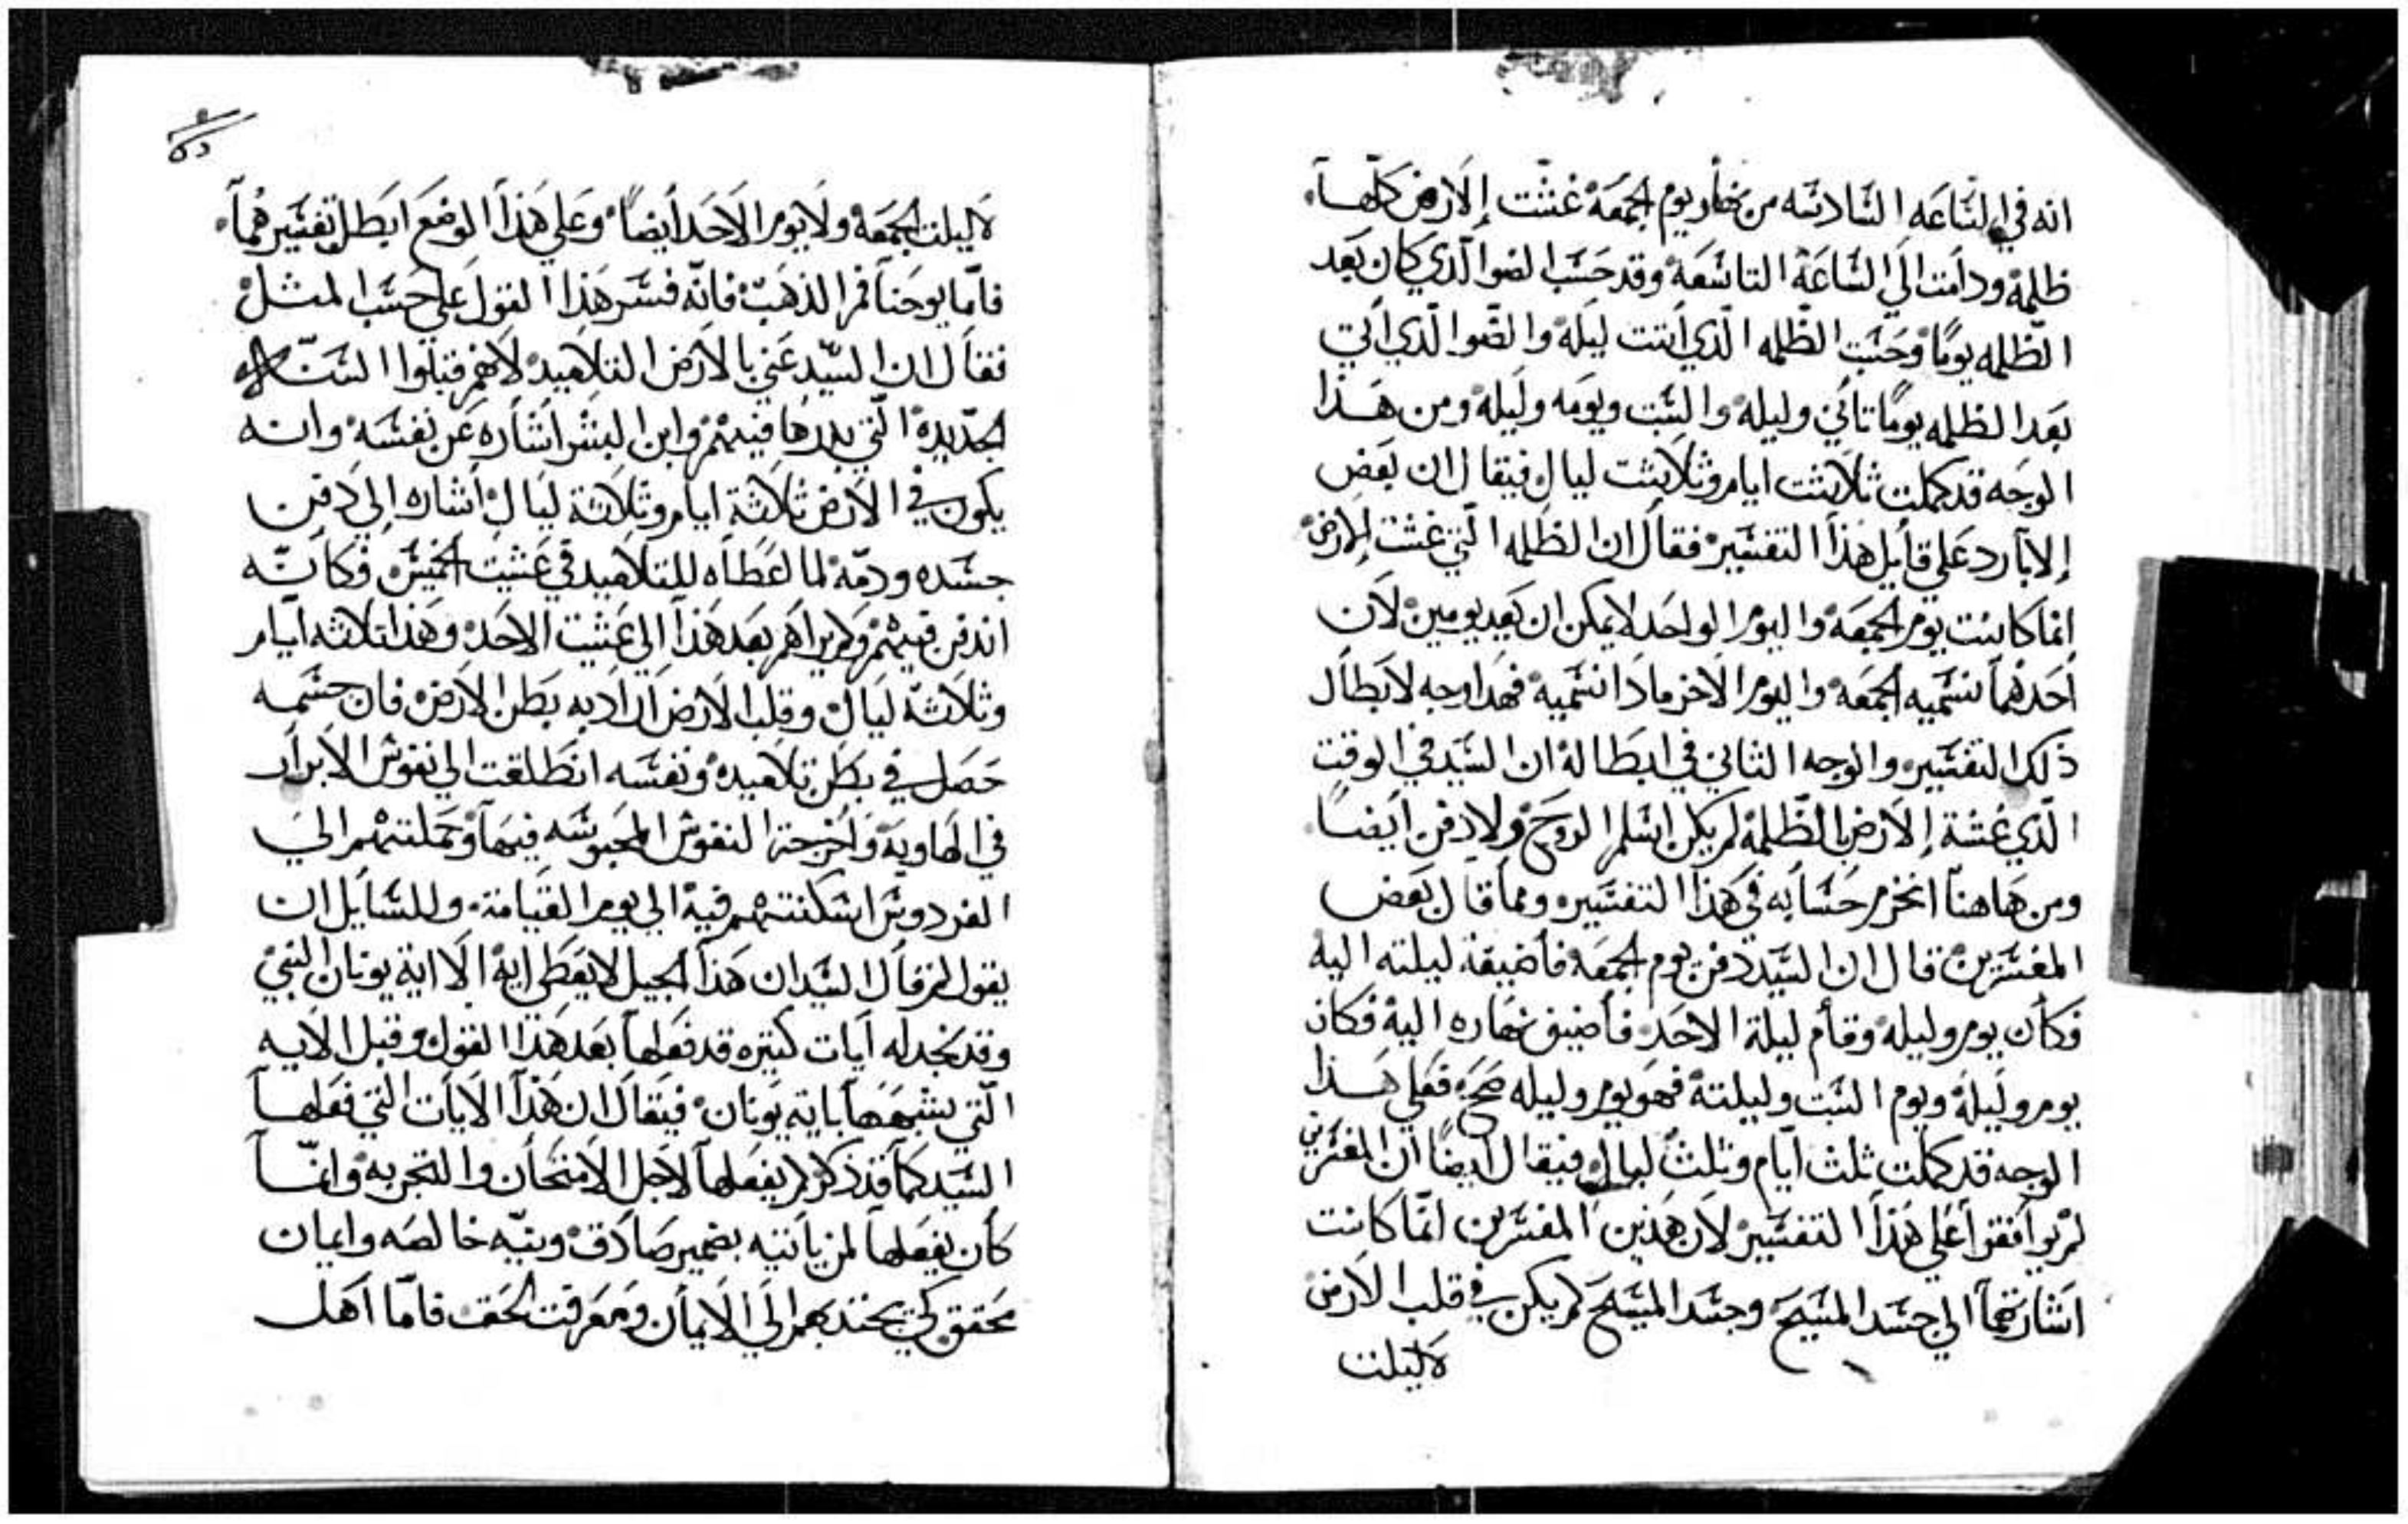 انه في الساعه السادسه من نهار يوم الجمعة غشت الارض كلها
ظلمة ودامت الي الساعة التاسعة وقد حسب الضوا الذي كان بعد
الظلمه يومًا وحسبت الظلمه الذي اتت ليلة والضوا الذي اتي
بعد الظلمه يومًا تاني وليله والسبت ويومه وليلة ومن هذا
الوجه قد كملت ثلاثت ايام وثلاثت ليال فيقال ان بعض
الابا رد علي قايل هذا التفسير فقال ان الظلمه التي غشت الارض
انما كانت يوم الجمعة واليوم الواحد لا يمكن ان يعد يومين لان
احدهما نسميه الجمعة واليوم الاخر ماذا نسمية فهدا وجه لابطال
ذلك التفسير والوجه الثاني في ابطالة ان السيد في الوقت
الذي غشة الارض الظلمة لم يكن اسلم الروح ولا دفن ايضا
ومن هاهنا انخرم حسابه في هذا التفسير ومما قال بعض
المفسرين قال ان السيد دفن يوم الجمعة فاضيقة ليلته اليه
فكان يوم وليله وقام ليلة الاحد فاضيف نهاره الية فكان
يوم وليلة ويوم السبت وليلتة فهو يوم وليله فعلي هذا
الوجه قد كملت ثلث ايام وثلث ليال فيقال ايضا ان المفسرين
لم يوافقوا علي هذا التفسير لان هذين المفسرين انما كانت
اشارتهما الي جسد المسيح وجسد المسيح لم يكن في قلب الارض
لا ليلت
لا ليلت الجمعة ولا يوم الاحد ايضًا وعلي هذا الوضع ابطل تفسيرهما
فاما يوحنا فم الذهب فانه فسر هذا القول علي حسب المثل
فقال ان السيد عني بالارض التلاميد لانهم قبلوا السنه
الجديدة التي بدرها فيهم وابن البشر اشاره عن نفسة وانه
يكون في الارض ثلاثة ايام وثلاثة ليال اشاره الي دفن
جسده ودمه لما اعطاه للتلاميد في عشيت الخميس فكانه
اندفن فيهم ولم يراهم بعد هذا الي عشيت الاحد وهذا تلاثه ايام
وثلاثة ليال وقلب الارض اراد به بطن الارض فان جسمه
حصل في بطن تلاميده ونفسه انطلقت الي نفوس الابرار
في الهاوية واخرجت النفوس المحبوسه فيها وحملتهم الي
الفردوس اسكنتهم فية الي يوم القيامة وللسايل ان
يقول لم قال السيد ان هذا الجيل لا يعطي اية الا اية يونان النبي
وقد نجد له ايات كتيره قد فعلها بعد هذا القول وقبل الايه
التي يشبهها باية يونان فيقال ان هذا الايات التي فعلها
السيد كما قد ذكر لم يفعلها لاجل الامتحان والتجربه وانما
كان يفعلها لمن ياتيه بضمير صادق ونيه خالصه وايمان
محقق كي يجتذبهم الي الايمان ومعرفت الحق فاما اهل